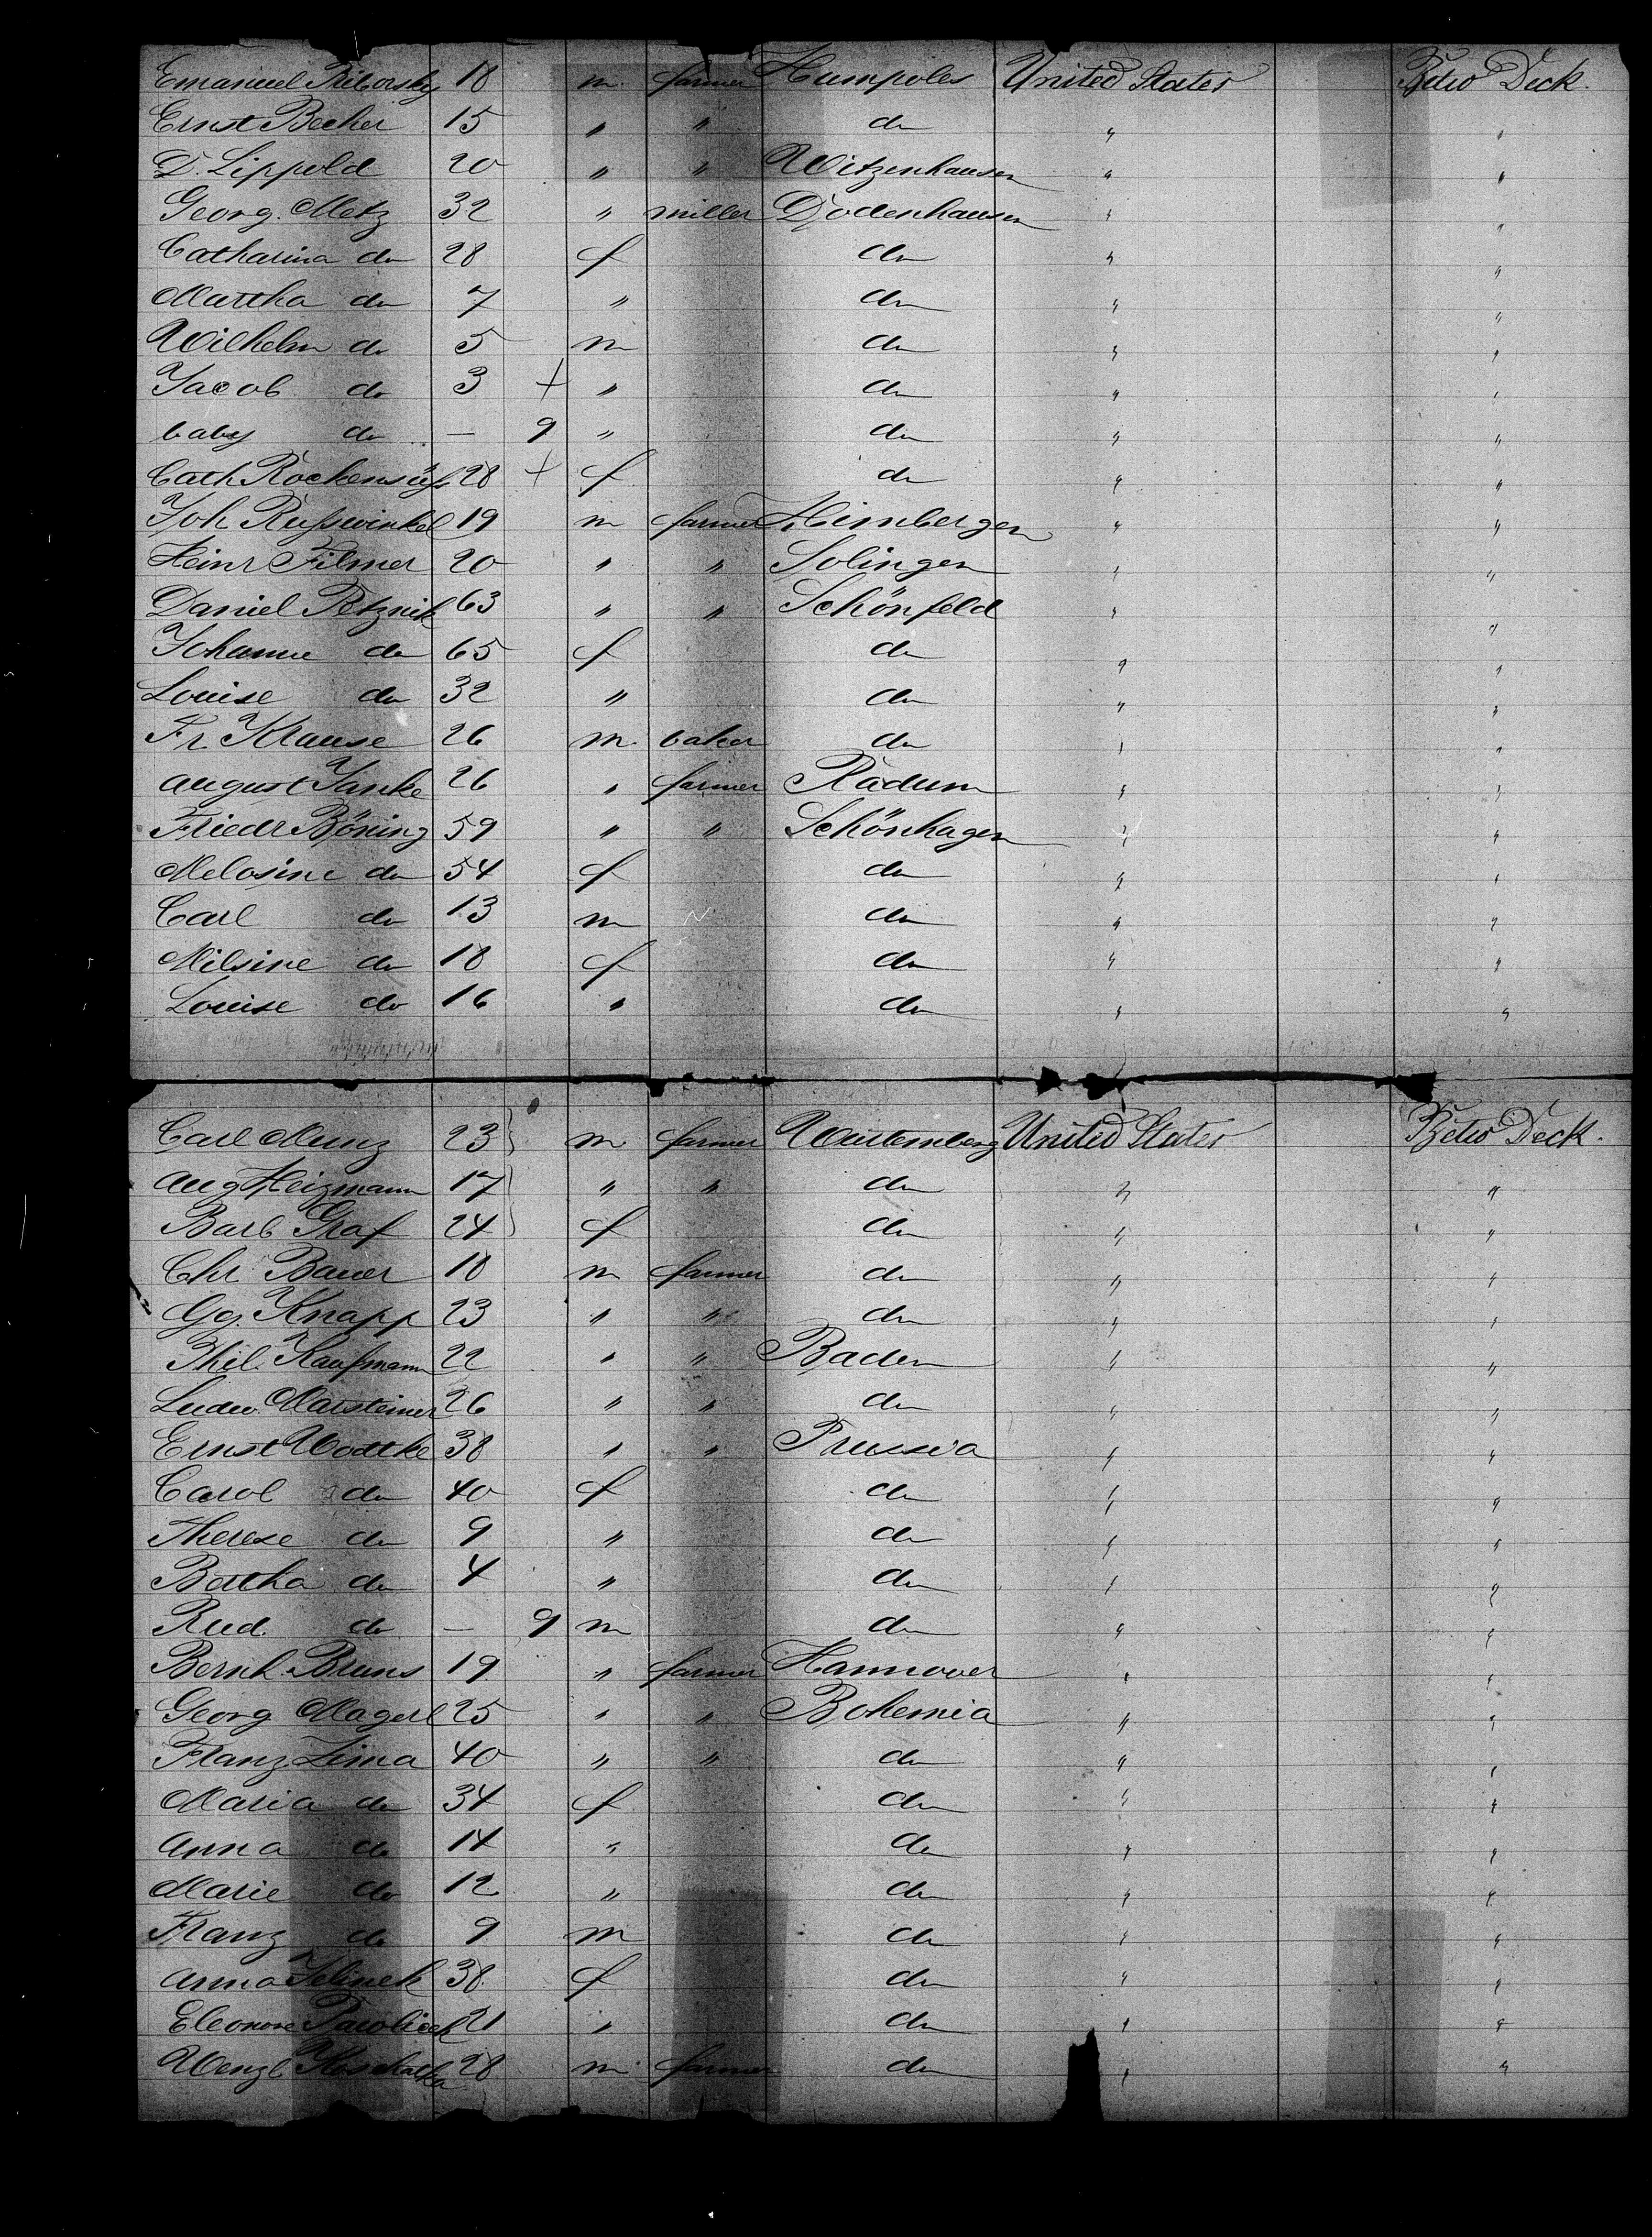 Emanuel Riborsky 18 m. farmer Humpoles United States Betw Deck.
Ernst Becker 15 " " do " "
D. Lippold 20 " " Witzenhausen " "
Georg. Metz 32 " miller Dodenhausen " "
Catharina do 28 f do " "
Martha do 7 " do " "
Wilhelm do 5 m do " "
Jacob do 3 + " do " "
baby do — 9 " do " "
Cath Rockensüß 28 + f do " "
Joh Rußwinkel 19 m farmer Himbergen " "
Heinr Filmer 20 " " Solingen " "
Daniel Petznik 63 " " Schönfeld " "
Johanne do 65 f do " "
Louise do 32 " do " "
Fr. Krause 26 m baker do " "
August Janke 26 " farmer Radum " "
Friedr Böning 59 " " Schönhagen " "
Melosine do 54 f do " "
Carl do 13 m do " "
Milsine do 18 f do " "
Louise do 16 " do " "
Carl Munz 23 m farmer Würtemberg United States Betw Deck.
Aug Heizmann 17 " " do " "
Barb Graf 24 f do " "
Chr Bauer 18 m farmer do " "
Gg. Knapp 23 " " do " "
Phil. Kaufmann 22 " " Baden " "
Ludw. Marsteiner 26 " " do " "
Ernst Wodtke 38 " " Prussia " "
Carol do 40 f do " "
Therese do 9 " do " "
Bertha do 4 " do " "
Rud. do — 9 m do " "
Bernh. Bruns 19 " farmer Hannover " "
Georg Magerl 25 " " Bohemia " "
Franz Zima 40 " " do " "
Maria do 34 f do " "
Anna do 14 " do " "
Marie do 12 " do " "
Franz do 9 m do " "
Anna Jelinek 38 f do " "
Eleonore Pavolicek 21 " do " "
Wenzl 28 m farmer do " "